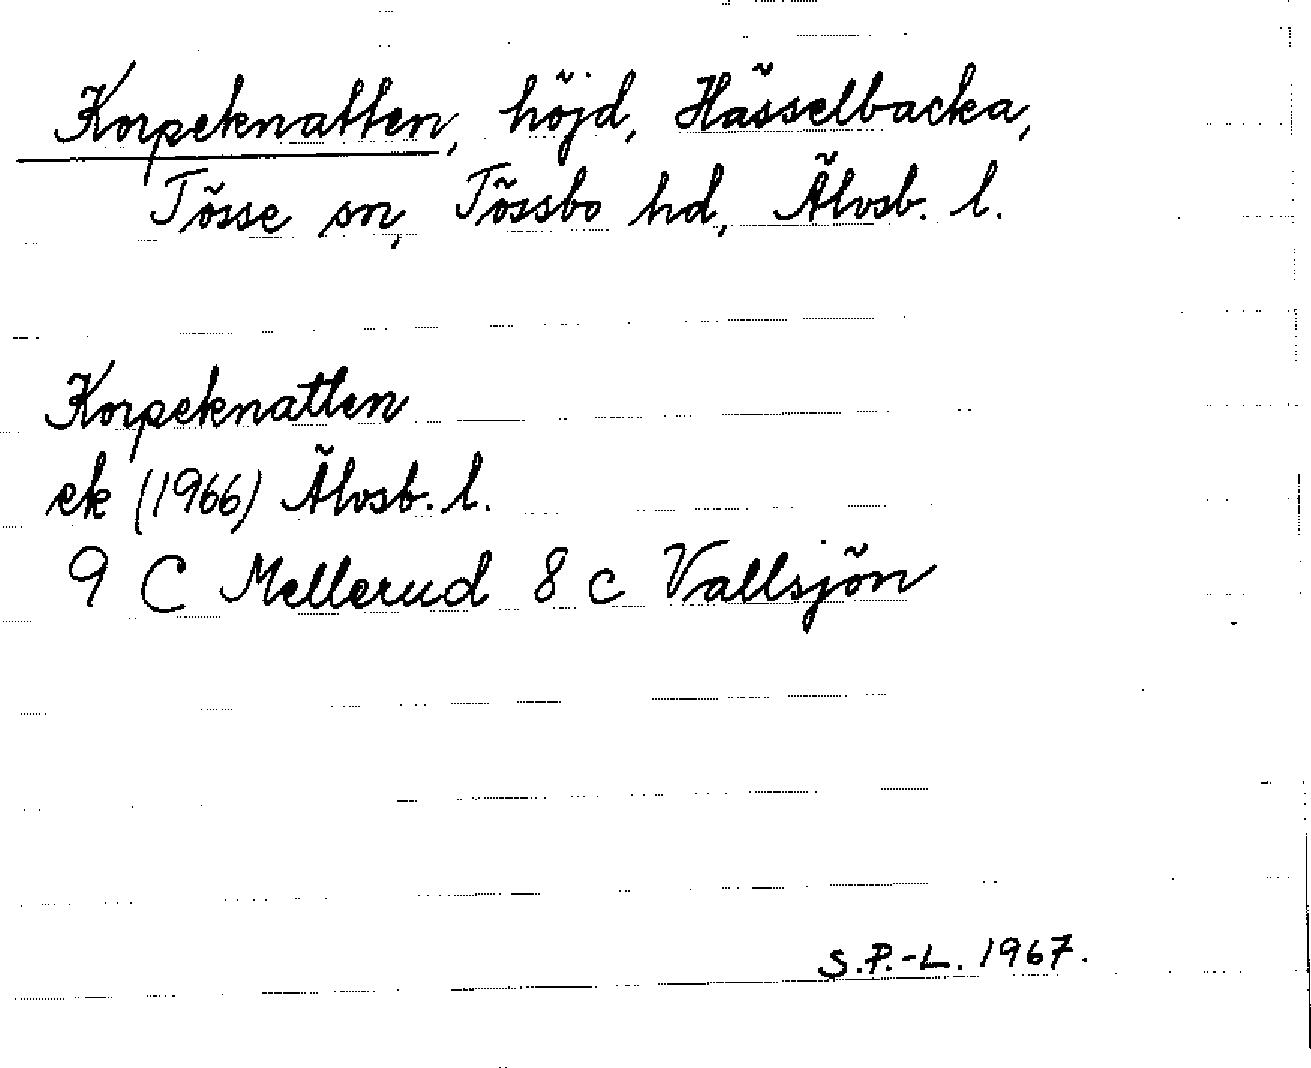 Korpeknatten, höjd, Hässelbacka,
Tösse sn, Tössbo hd, Älvsb. l.
Korpeknatten
ek (1966) Älvsb. l.
9 C Mellerud 8 c Vallsjön
S.P.-L. 1967.